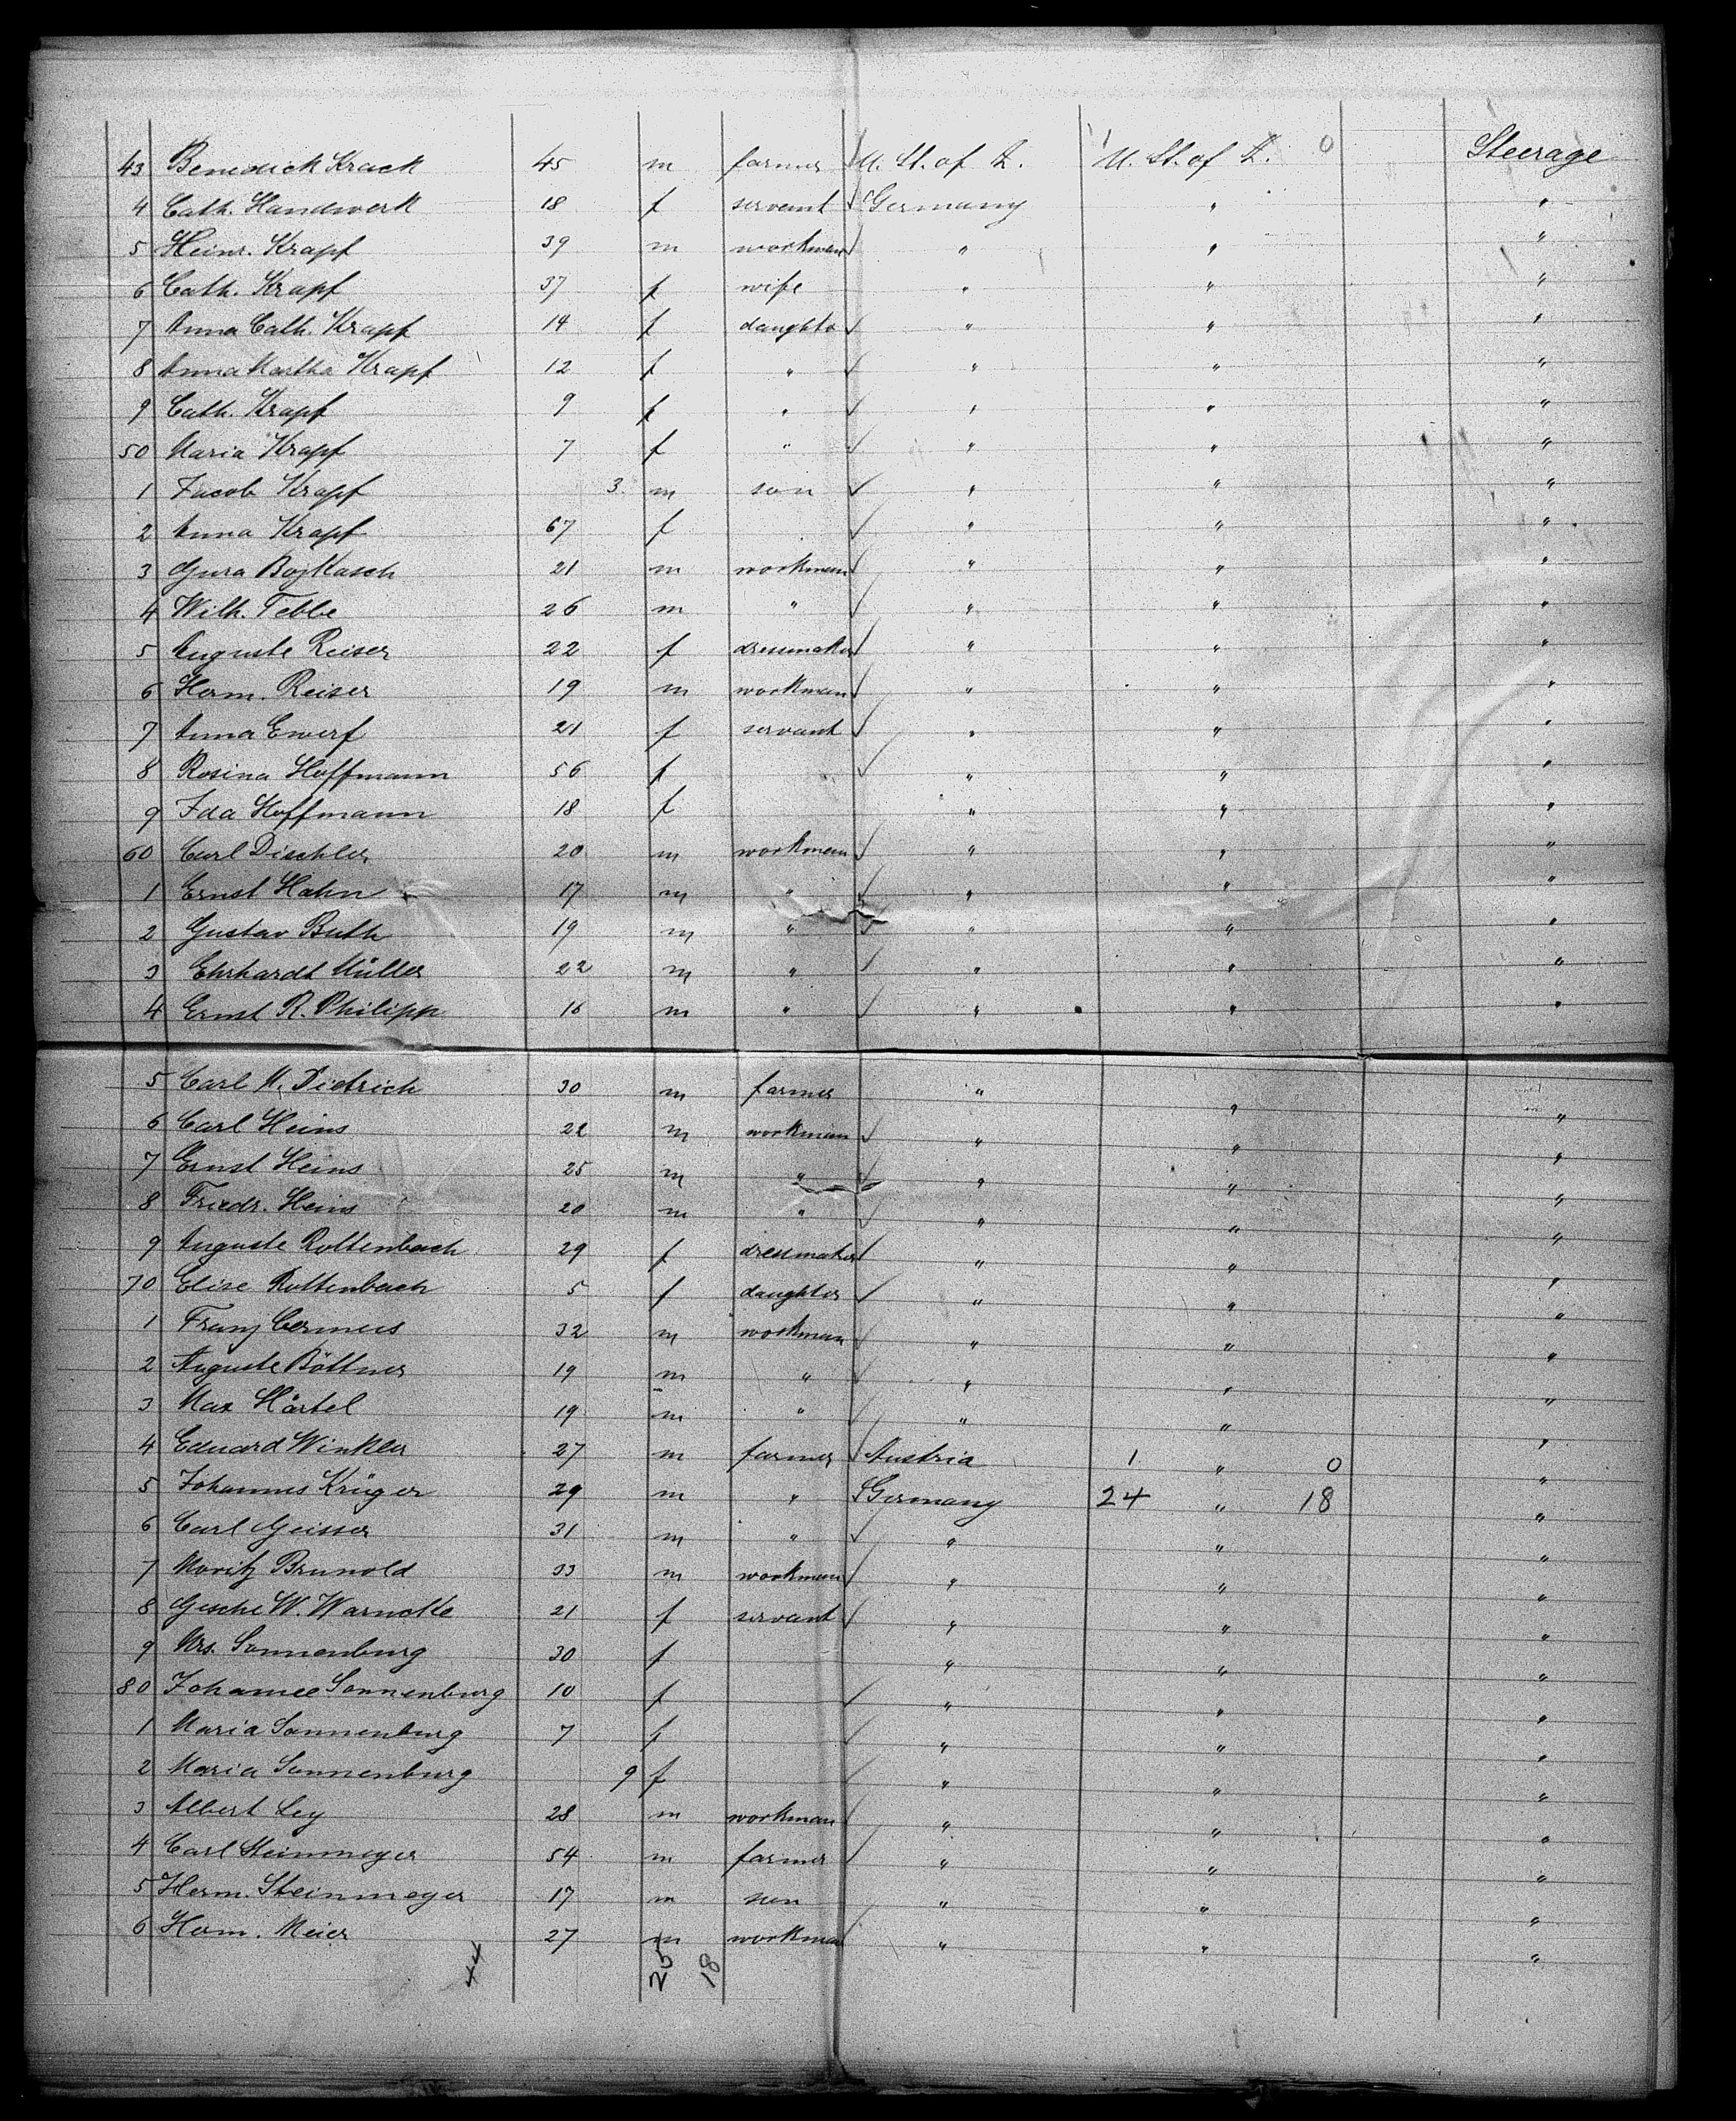 43 Benedick Krack 45 m farmer U. St. of A. U. St. of A. 0 Steerage
4 Cath. Handwerk 18 f servant Germany " "
5 Heinr. Krapf 39 m workman " " "
6 Cath. Krapf 37 f wife " " "
7 Anna Cath. Krapf 14 f daughter " " "
8 Anna Martha Krapf 12 f " " " "
9 Cath. Krapf 9 f " " " "
50 Maria Krapf 7 f " " " "
1 Jacob Krapf 3 m son " " "
2 Anna Krapf 67 f " " "
3 Gjura Bojkasch 21 m workman " " "
4 Wilh. Tebbe 26 m " " " "
5 Auguste Reiser 22 f dressmaker " " "
6 Herm. Reiser 19 m workman " " "
7 Anna Ewerf 21 f servant " " "
8 Rosina Hoffmann 56 f " " "
9 Ida Hoffmann 18 f " " "
60 Carl Dischler 20 m workman " " "
1 Ernst Hahn 17 m " " " "
2 Gustav Buth 19 m " " " "
3 Ehrhardt Müller 22 m " " " "
4 Ernst R. Philipp 16 m " " " "
5 Carl M. Dietrich 30 m farmer " " "
6 Carl Heins 22 m workman " " "
7 Ernst Heins 25 m " " " "
8 Friedr. Heins 20 m " " " "
9 Auguste Rottenbach 29 f dressmaker " " "
70 Elise Rottenbach 5 f daughter " " "
1 Franz Cermees 32 m workman " " "
2 Auguste Böttner 19 m " " " "
3 Max Härtel 19 m " " " "
4 Eduard Winkler 27 m farmer Austria 1 " 0 "
5 Johannes Krüger 29 m " Germany 24 " 18 "
6 Carl Geisser 31 m " " " "
7 Moritz Brunold 33 m workman " " "
8 Gesche W. Warncke 21 f servant " " "
9 Mrs. Sonnenburg 30 f " " "
80 Johanne Sonnenburg 10 f " " "
1 Maria Sonnenburg 7 f " " "
2 Maria Sonnenburg 9 f " " "
3 Albert Ley 28 m workman " " "
4 Carl Steinmeyer 54 m farmer " " "
5 Herm. Steinmeyer 17 m son " " "
6 Herm. Meier 27 m workman " " "
44 25 18